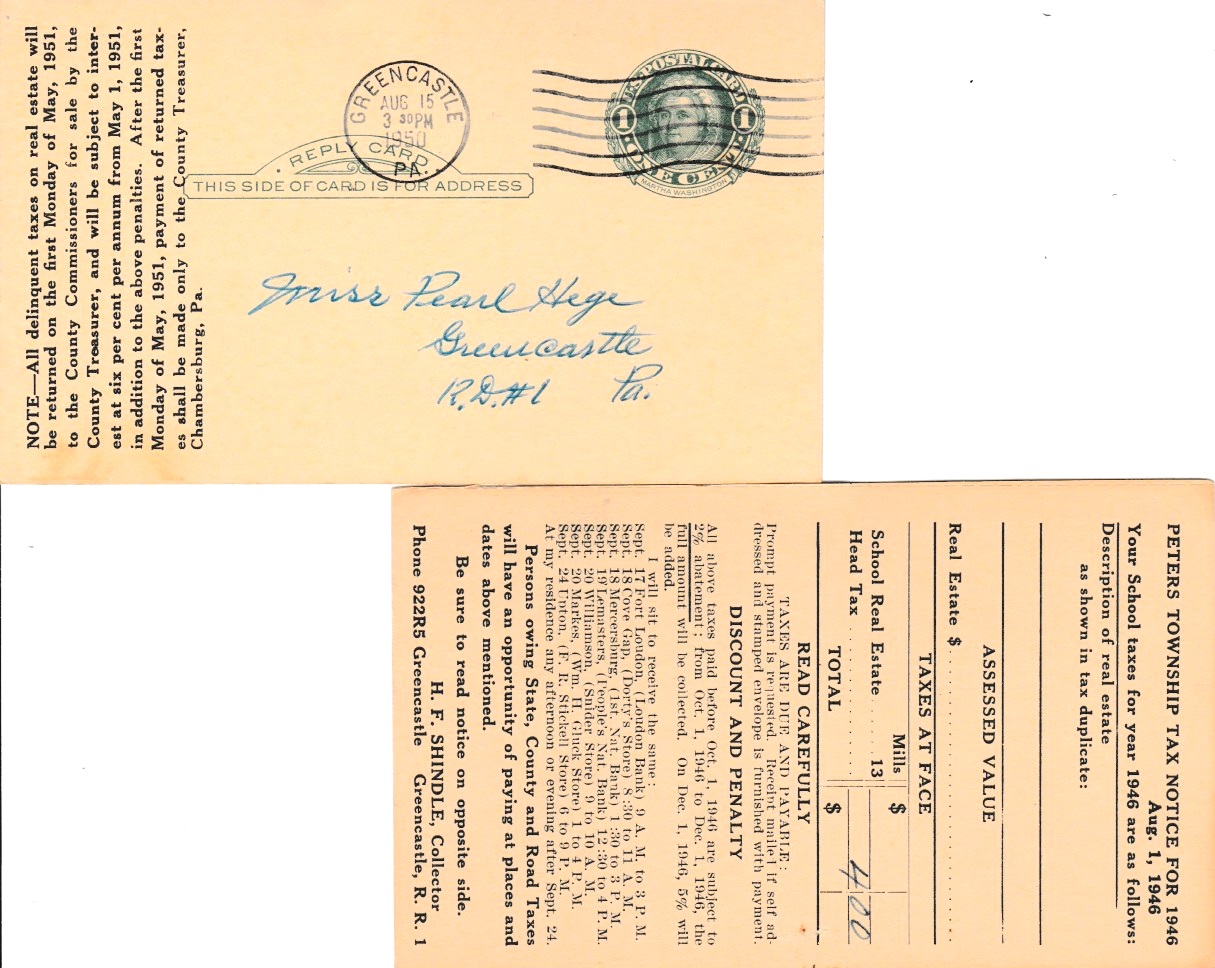 NOTE—All delinquent taxes on real estate will
be returned on the first Monday of May, 1951,
to the County Commissioners for sale by the
County Treasurer, and will be subject to inter-
est at six per cent per annum from May 1, 1951,
in addition to the above penalties. After the first
Monday of May, 1951, payment of returned tax-
es shall be made only to the County Treasurer,
Chambersburg, Pa.
GREENCASTLE
AUG 15
3 30PM
1950
PA.
U.S. POSTAL CARD
1 1
ONE CENT
MARTHA WASHINGTON
REPLY CARD
THIS SIDE OF CARD IS FOR ADDRESS
Miss Pearl Hege
Greencastle
R.D.#1 Pa.
PETERS TOWNSHIP TAX NOTICE FOR 1946
Aug. 1, 1946
Your School taxes for year 1946 are as follows:
Description of real estate
as shown in tax duplicate:
ASSESSED VALUE
Real Estate $
TAXES AT FACE
Mills $
School Real Estate 13
Head Tax 4 00
TOTAL $
READ CAREFULLY
TAXES ARE DUE AND PAYABLE:
Prompt payment is requested. Receipt mailed if self ad-
dressed and stamped envelope is furnished with payment.
DISCOUNT AND PENALTY
All above taxes paid before Oct. 1, 1946 are subject to
2% abatement; from Oct. 1, 1946 to Dec. 1, 1946, the
full amount will be collected. On Dec. 1, 1946, 5% will
be added.
I will sit to receive the same:
Sept. 17 Fort Loudon, (Loudon Bank) 9 A. M. to 3 P. M.
Sept. 18 Cove Gap, (Dorty's Store) 8:30 to 11 A. M.
Sept. 18 Mercersburg, (1st. Nat. Bank) 1:30 to 3 P. M.
Sept. 19 Lemasters, (People's Nat. Bank) 12:30 to 4 P. M.
Sept. 20 Williamson, (Snider Store) 9 to 10 A. M.
Sept. 20 Markes, (Wm. H. Gluck Store) 1 to 4 P. M.
Sept. 24 Upton, (F. R. Stickell Store) 6 to 9 P. M.
At my residence any afternoon or evening after Sept. 24.
Persons owing State, County and Road Taxes
will have an opportunity of paying at places and
dates above mentioned.
Be sure to read notice on opposite side.
H. F. SHINDLE, Collector
Phone 922R5 Greencastle Greencastle, R. R. 1